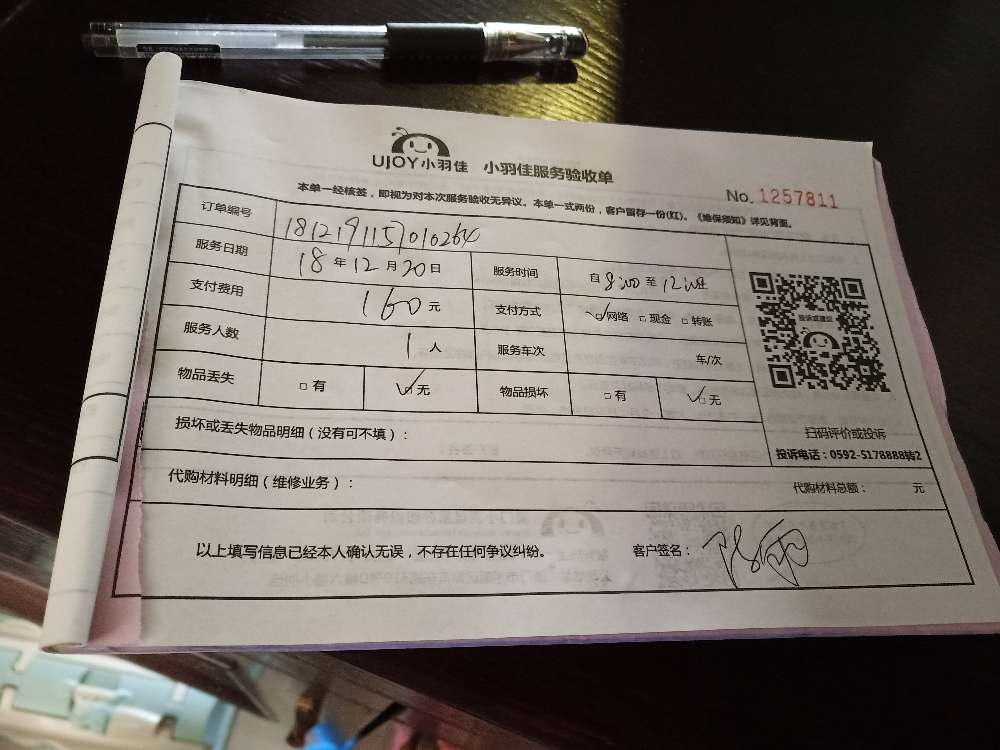 UJOY小羽佳 小羽佳服务验收单
No. 1257811
本单一经核签，即视为对本次服务验收无异议。本单一式两份，客户留存一份(红)。《维保须知》详见背面。
订单编号 1812191157010264
服务日期 18 年 12 月 20 日 服务时间 自 8:00 至 12:00
支付费用 160 元 支付方式 ☑网络 □现金 □转账
服务人数 1 人 服务车次 车/次
物品丢失 □有 ☑无 物品损坏 □有 ☑无
投诉或建议
扫码评价或投诉
投诉电话：0592-5178888转2
损坏或丢失物品明细（没有可不填）：
代购材料明细（维修业务）： 代购材料总额： 元
以上填写信息已经本人确认无误，不存在任何争议纠纷。 客户签名：